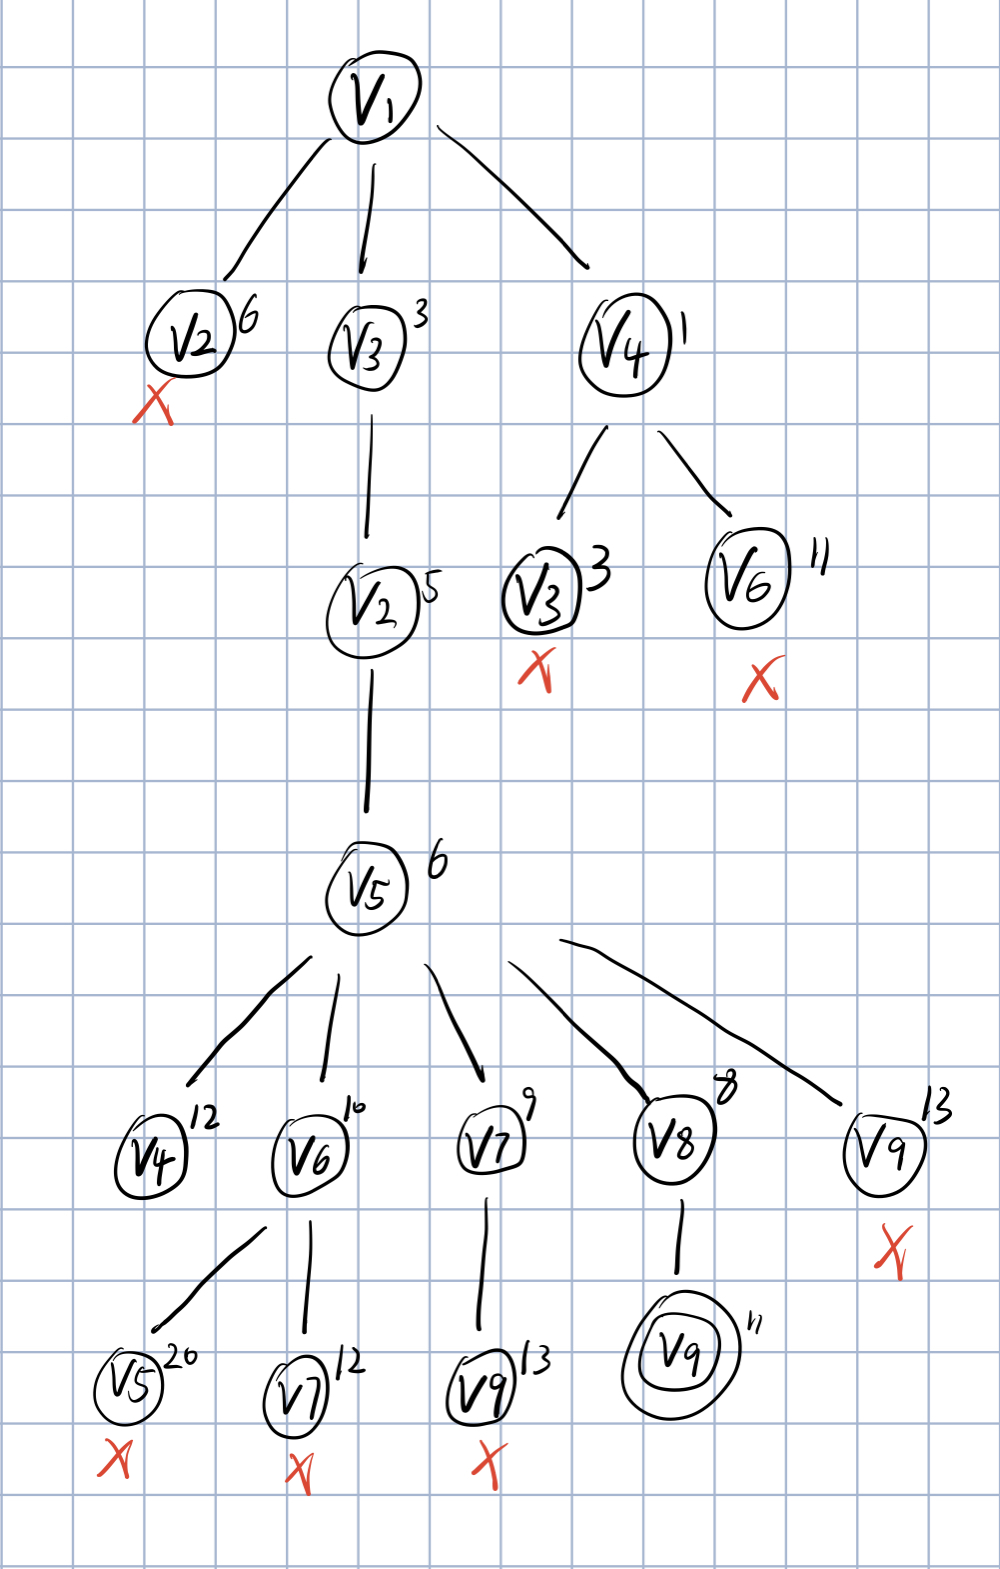 V1
V2 6 V3 3 V4 1
X
V2 5 V3 3 V6 11
X X
V5 6
V4 12 V6 10 V7 9 V8 8 V9 13
X
V5 20 V7 12 V9 13 V9 11
X X X